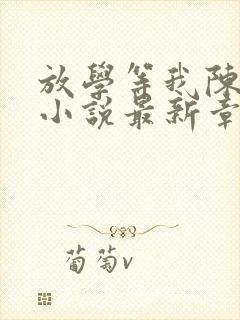 放學等我陳
小說最新章
葡萄v